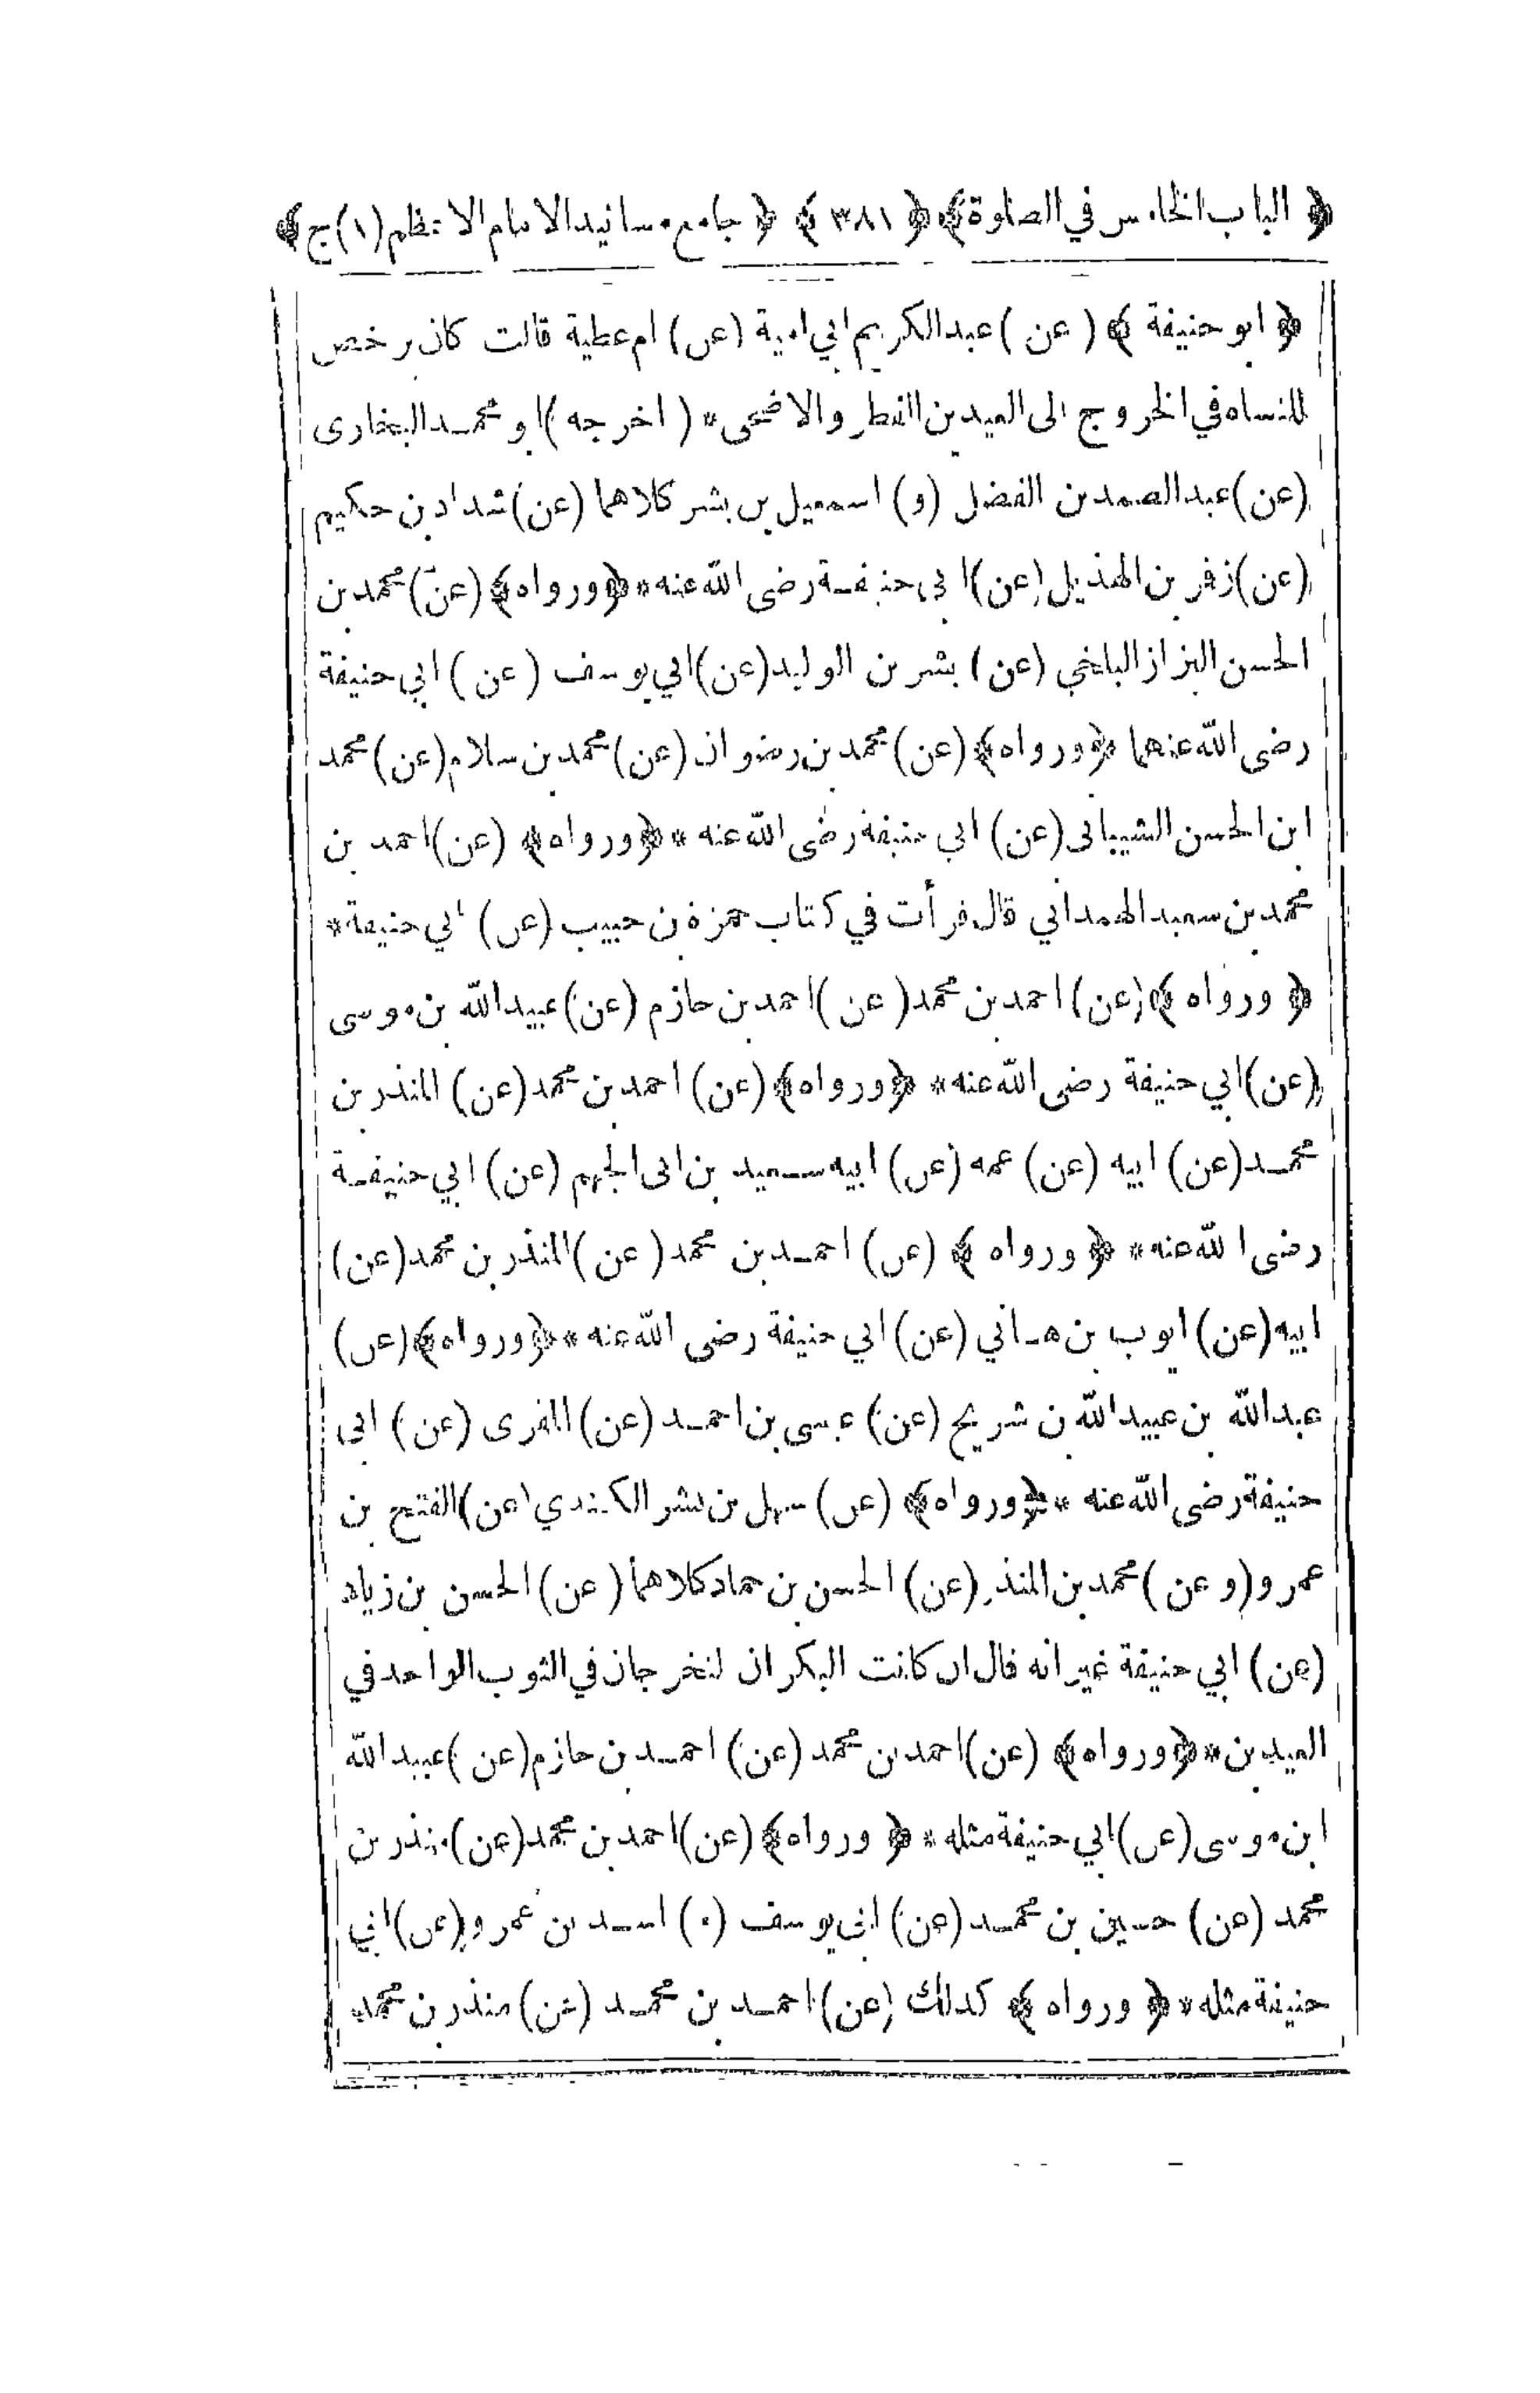 ﴿ الباب الخامس في الصلوة ﴾ ﴿ ٣٨١ ﴾ ﴿ جامع مسانيد الامام الاعظم (١) ج ﴾
﴿ ابو حنيفة ﴾ ( عن ) عبد الكريم ابي امية (عن) ام عطية قالت كان يرخص
للنساء في الخروج الى العيدين الفطر والاضحى * ( اخرجه ) ابو محمد البخارى
(عن) عبد الصمد بن الفضل (و) اسمعيل بن بشر كلاهما (عن) شداد بن حكيم
(عن) زفر بن الهذيل (عن) ابي حنيفة رضى الله عنه * ﴿ ورواه ﴾ (عن) محمد بن
الحسن البزاز البلخي (عن) بشر بن الوليد (عن) ابي يوسف ( عن ) ابي حنيفة
رضى الله عنهما ﴿ ورواه ﴾ (عن) محمد بن رضوان (عن) محمد بن سلام (عن) محمد
ابن الحسن الشيبانى (عن) ابي حنيفة رضى الله عنه * ﴿ ورواه ﴾ (عن) احمد بن
محمد بن سعيد الهمداني قال قرأت في كتاب حمزة بن حبيب (عن) ابي حنيفة *
﴿ ورواه ﴾ (عن) احمد بن محمد ( عن ) احمد بن حازم (عن) عبيد الله بن موسى
(عن) ابي حنيفة رضى الله عنه * ﴿ ورواه ﴾ (عن) احمد بن محمد (عن) المنذر بن
محمد (عن) ابيه (عن) عمه (عن) ابيه سعيد بن ابى الجهم (عن) ابي حنيفة
رضى الله عنه * ﴿ ورواه ﴾ (عن) احمد بن محمد ( عن ) المنذر بن محمد (عن)
ابيه (عن) ايوب بن هاني (عن) ابي حنيفة رضى الله عنه * ﴿ ورواه ﴾ (عن)
عبد الله بن عبيد الله بن شريح (عن) عيسى بن احمد (عن) المقرى (عن) ابى
حنيفة رضى الله عنه * ﴿ ورواه ﴾ (عن) سهل بن بشر الكندي (عن) الفتح بن
عمرو (و عن ) محمد بن المنذر (عن) الحسن بن حماد كلاهما ( عن ) الحسن بن زياد
(عن) ابي حنيفة غير انه قال ان كانت البكران لتخرجان في الثوب الواحد في
العيدين * ﴿ ورواه ﴾ (عن) احمد بن محمد (عن) احمد بن حازم (عن ) عبيد الله
ابن موسى (عن) ابي حنيفة مثله * ﴿ ورواه ﴾ (عن) احمد بن محمد (عن) منذر بن
محمد (عن) حسين بن محمد (عن) ابى يوسف اسد بن عمرو (عن) ابي
حنيفة مثله * ﴿ ورواه ﴾ كذلك (عن) احمد بن محمد (عن) منذر بن محمد